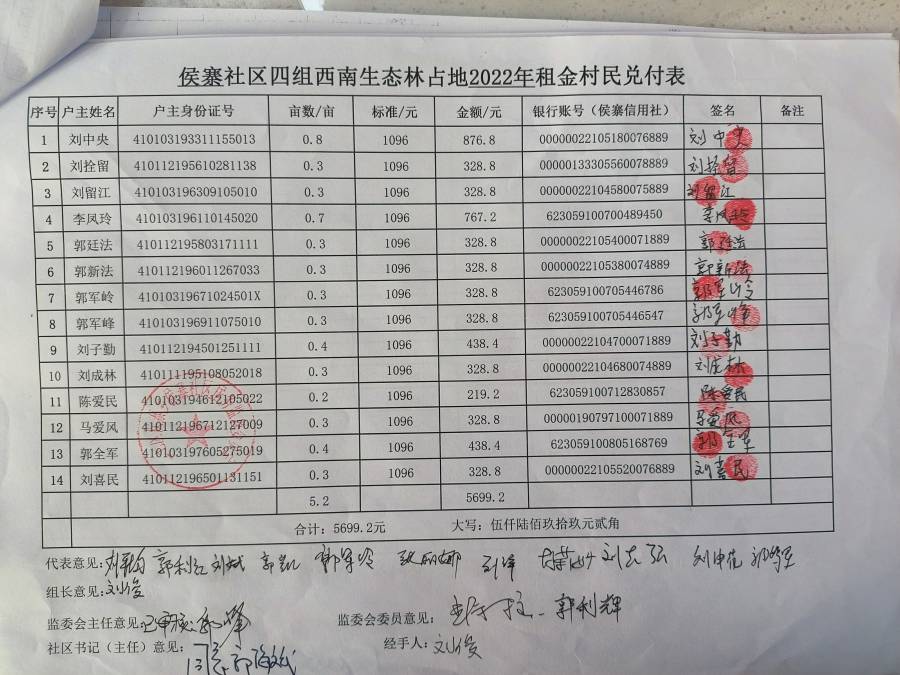 侯寨社区四组西南生态林占地2022年租金村民兑付表
序号 户主姓名 户主身份证号 亩数/亩 标准/元 金额/元 银行账号（侯寨信用社） 签名 备注
1 刘中央 410103193311155013 0.8 1096 876.8 00000022105180076889 刘中央
2 刘拴留 410112195610281138 0.3 1096 328.8 00000133305560078889 刘拴留
3 刘留江 410103196309105010 0.3 1096 328.8 00000022104580075889 刘留江
4 李凤玲 410103196110145020 0.7 1096 767.2 623059100700489450 李凤玲
5 郭廷法 410112195803171111 0.3 1096 328.8 00000022105400071889 郭廷法
6 郭新法 410112196011267033 0.3 1096 328.8 00000022105380074889 郭新法
7 郭军岭 41010319671024501X 0.3 1096 328.8 623059100705446786 郭军岭
8 郭军峰 410103196911075010 0.3 1096 328.8 623059100705446547 郭军峰
9 刘子勤 410112194501251111 0.4 1096 438.4 00000022104700071889 刘子勤
10 刘成林 410111195108052018 0.3 1096 328.8 00000022104680074889 刘成林
11 陈爱民 410103194612105022 0.2 1096 219.2 623059100712830857 陈爱民
12 马爱风 410112196712127009 0.3 1096 328.8 00000190797100071889 马爱风
13 郭全军 410103197605275019 0.4 1096 438.4 623059100805168769 郭全军
14 刘喜民 410112196501131151 0.3 1096 328.8 00000022105520076889 刘喜民
5.2 5699.2
合计：5699.2元 大写：伍仟陆佰玖拾玖元贰角
代表意见： 郭利红 刘斌
组长意见：刘俊
监委会主任意见：已审核 监委会委员意见： 郭利辉
社区书记（主任）意见：同意 经手人：刘俊